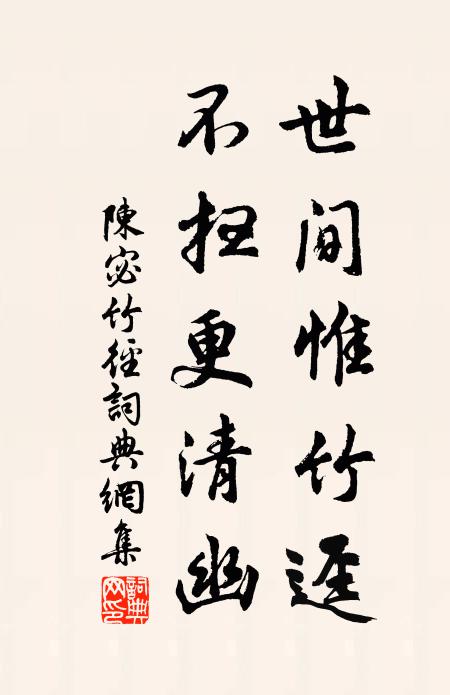 世間惟竹逕
不扫更清幽
陳宓竹徑詞典網集
詞典
网印